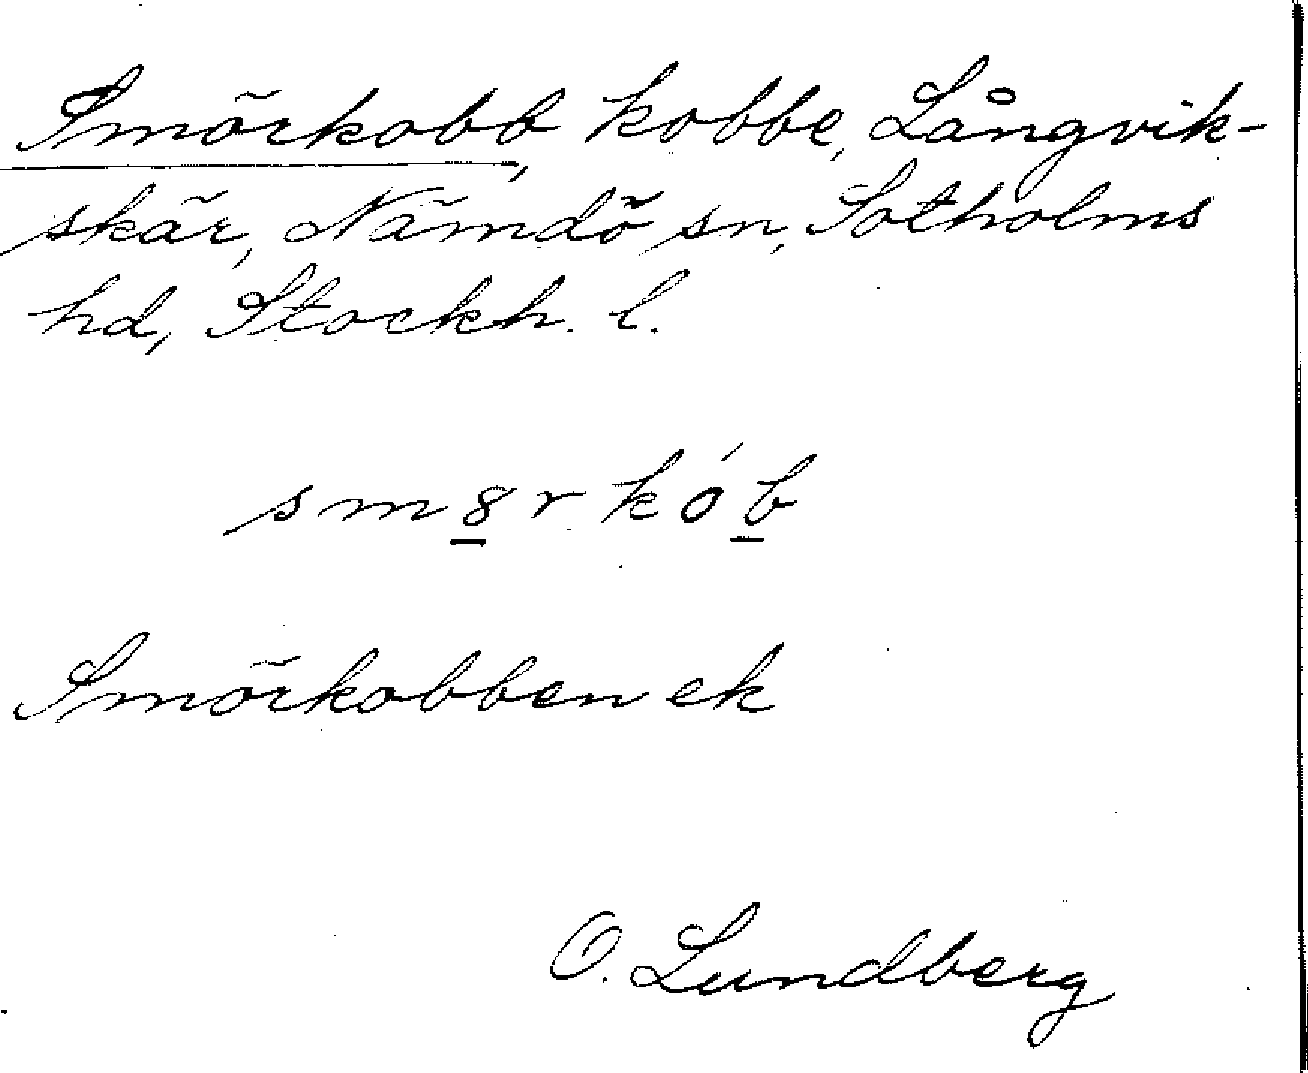 Smörkobb, kobbe, Långvik-
skär, Nämdö sn, Sotholms
hd, Stockh. l.
sm8rkób
Smörkobben ek
O. Lundberg